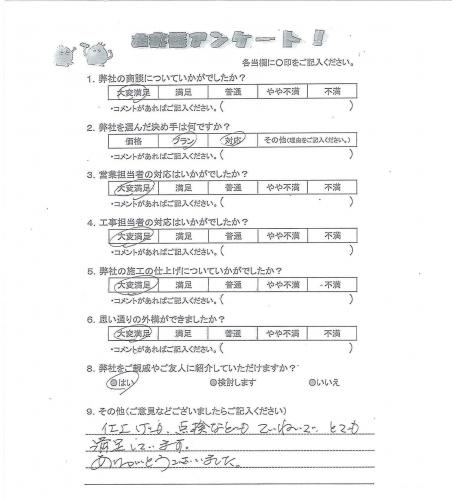 お客様アンケート!
各当欄に〇印をご記入ください。
1. 弊社の商談についていかがでしたか?
大変満足 満足 普通 やや不満 不満
・コメントがあればご記入ください。( )
2. 弊社を選んだ決め手は何ですか?
価格 プラン 対応 その他(理由をご記入ください。)
・コメントがあればご記入ください。( )
3. 営業担当者の対応はいかがでしたか?
大変満足 満足 普通 やや不満 不満
・コメントがあればご記入ください。( )
4. 工事担当者の対応はいかがでしたか?
大変満足 満足 普通 やや不満 不満
・コメントがあればご記入ください。( )
5. 弊社の施工の仕上げについていかがでしたか?
大変満足 満足 普通 やや不満 不満
・コメントがあればご記入ください。( )
6. 思い通りの外構ができましたか?
大変満足 満足 普通 やや不満 不満
・コメントがあればご記入ください。( )
8. 弊社をご親戚やご友人に紹介していただけますか?
◎はい ◎検討します ◎いいえ
9. その他(ご意見などございましたらご記入ください)
仕上げも、点検なども ていねいで、とても
満足しています。
ありがとうございました。